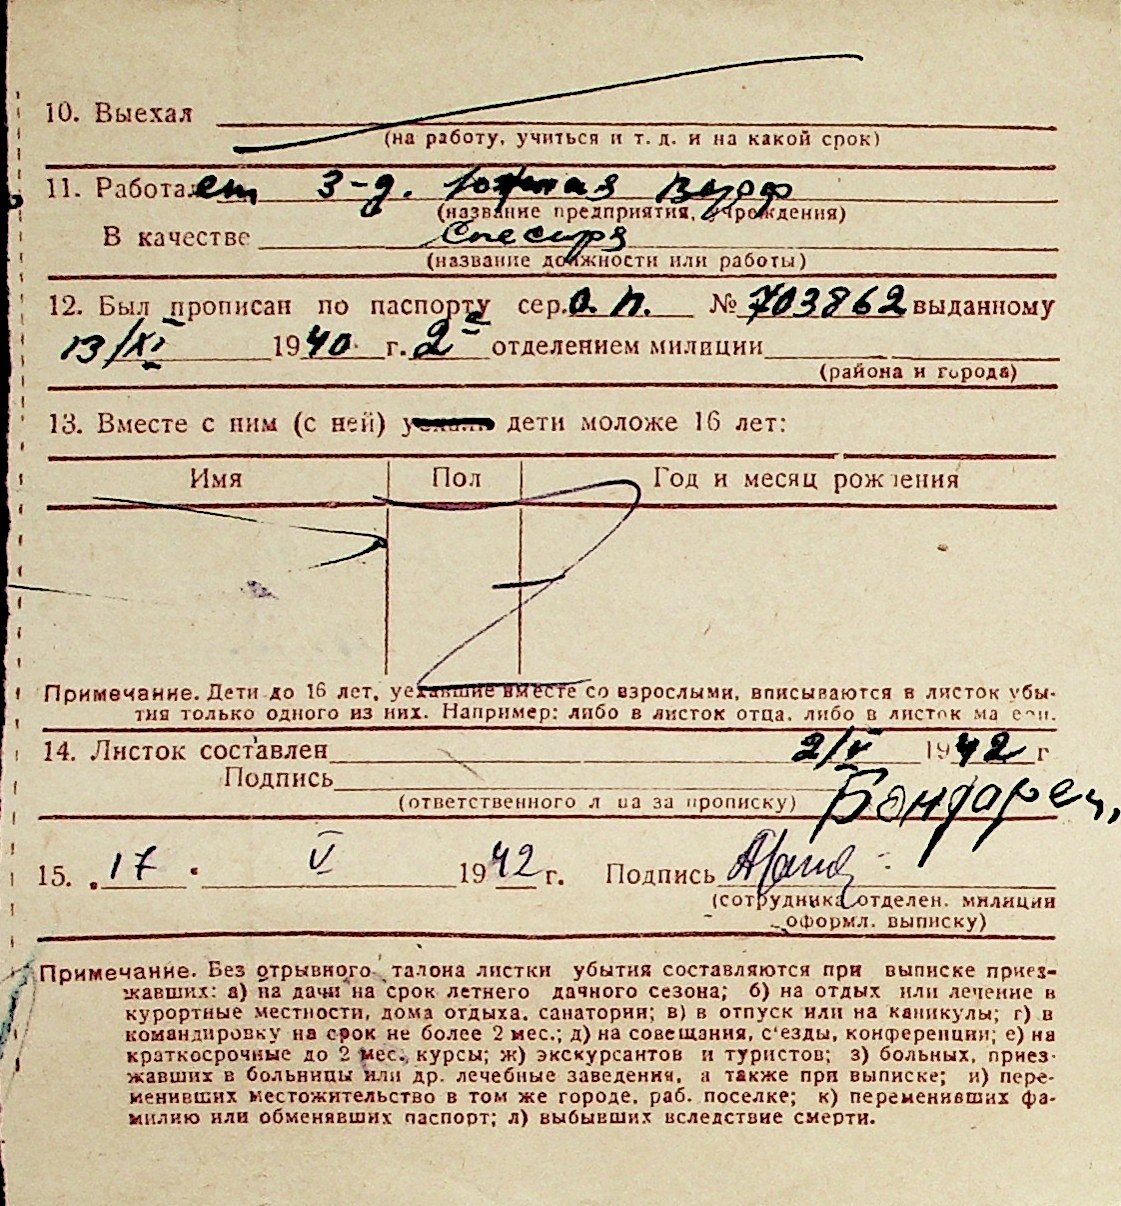 10. Выехал
(на работу, учиться и т. д. и на какой срок)
11. Работает 3-д. Южная Верф
(название предприятия, учреждения)
В качестве Слесаря
(название должности или работы)
12. Был прописан по паспорту сер. О. П. № 703862 выданному
13/XI 1940 г. 2ᵉ отделением милиции
(района и города)
13. Вместе с ним (с ней) дети моложе 16 лет:
Имя Пол Год и месяц рождения
Примечание. Дети до 16 лет, уехавшие вместе со взрослыми, вписываются в листок убы-
тия только одного из них. Например: либо в листок отца, либо в листок матери.
14. Листок составлен 2/V 1942 г
Подпись Бондарец
(ответственного лица за прописку)
15. 17. V 1942 г. Подпись
(сотрудника отделен. милиции
оформл. выписку)
Примечание. Без отрывного талона листки убытия составляются при выписке приез-
жавших: а) на дачи на срок летнего дачного сезона; б) на отдых или лечение в
курортные местности, дома отдыха, санатории; в) в отпуск или на каникулы; г) в
командировку на срок не более 2 мес.; д) на совещания, с'езды, конференции; е) на
краткосрочные до 2 мес. курсы; ж) экскурсантов и туристов; з) больных, приез-
жавших в больницы или др. лечебные заведения, а также при выписке; и) пере-
менивших местожительство в том же городе, раб. поселке; к) переменивших фа-
милию или обменявших паспорт; л) выбывших вследствие смерти.